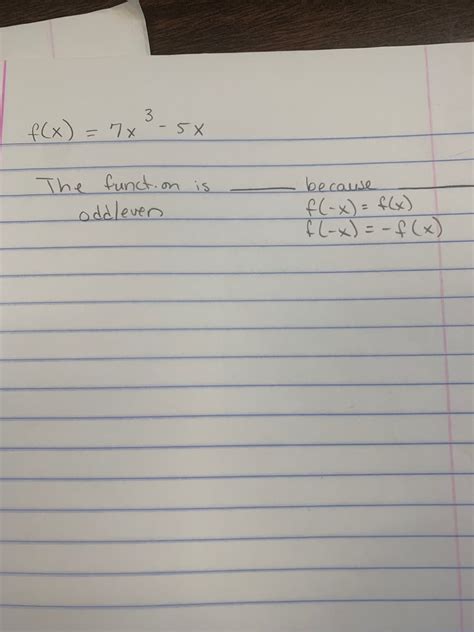 f(x) = 7x³ - 5x
The function is ____ because ____
odd/even f(-x) = f(x)
f(-x) = -f(x)